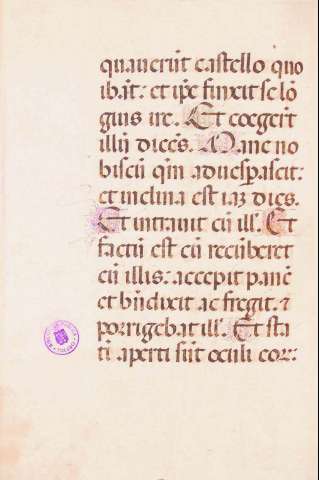 quauerũt castello quo
ibãt: et ip̃e finxit se lõ
gius ire. Et coegerũt
illũ dicẽs. Mane no
biscũ qm̃ aduesperascit:
et inclina est iaʒ dies.
Et intrauit cũ ill᷒. Et
factũ est cũ recũberet
cũ illis: accepit panẽ
et bñdixit ac fregit: ⁊
porrigebat ill᷒. Et sta
tĩ aperti sũt oculi eoꝝ: